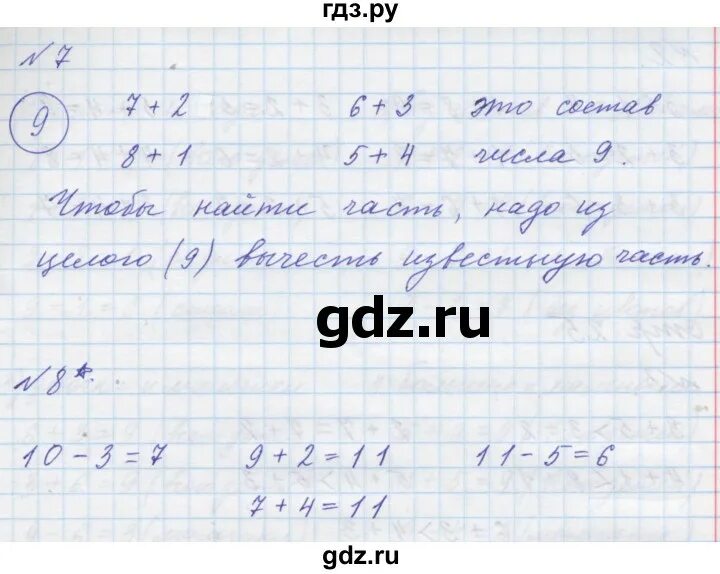 гдз.ру
№ 7
9 7 + 2 6 + 3 это состав
8 + 1 5 + 4 числа 9.
Чтобы найти часть, надо из
целого (9) вычесть известную часть.
gdz.ru
№ 8*.
10 - 3 = 7 9 + 2 = 11 11 - 5 = 6
7 + 4 = 11
gdz.ru